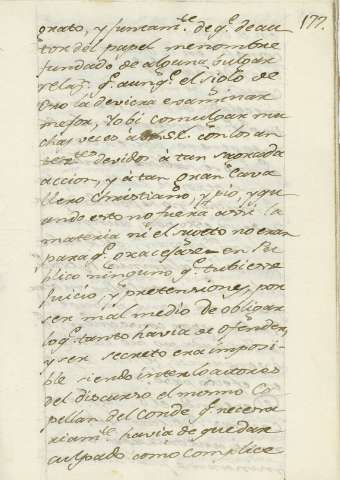 177.
orato, y juntam.te de q.e de au
tor del papel menombre
fundado de alguna bulgar
relaz.n q.e aunq.e el siglo de
Oro la deviera examinar
mejor, Yo bi comulgar mu
chas veces à SL. con los an
devidos à tan sagrada
accion, y à tan gran Cava
llero Christiano, y pio, y qu
ando esto no fuera assi la
materia ni el sueto no eran
para q.e oraciesse en Pu
blico ninguno q.e tubiesse
Juicio, y pretensiones, por
ser mal medio de obligar
lo q.e tanto havia de ofender,
y ser secreto era imposi-
ble siendo interlocutores
del discurso el mismo Ca
pellan del Conde q.e necesa
riam.te havia de quedar
culpado como complice